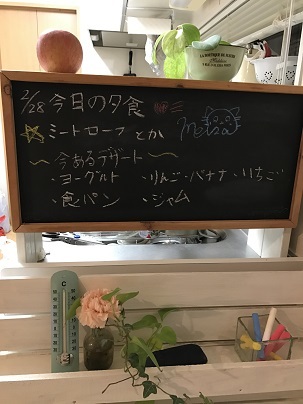 2/28 今日の夕食
ミートローフ とか
〜今あるデザート〜
・ヨーグルト ・りんご・バナナ・いちご
・食パン ・ジャム
C